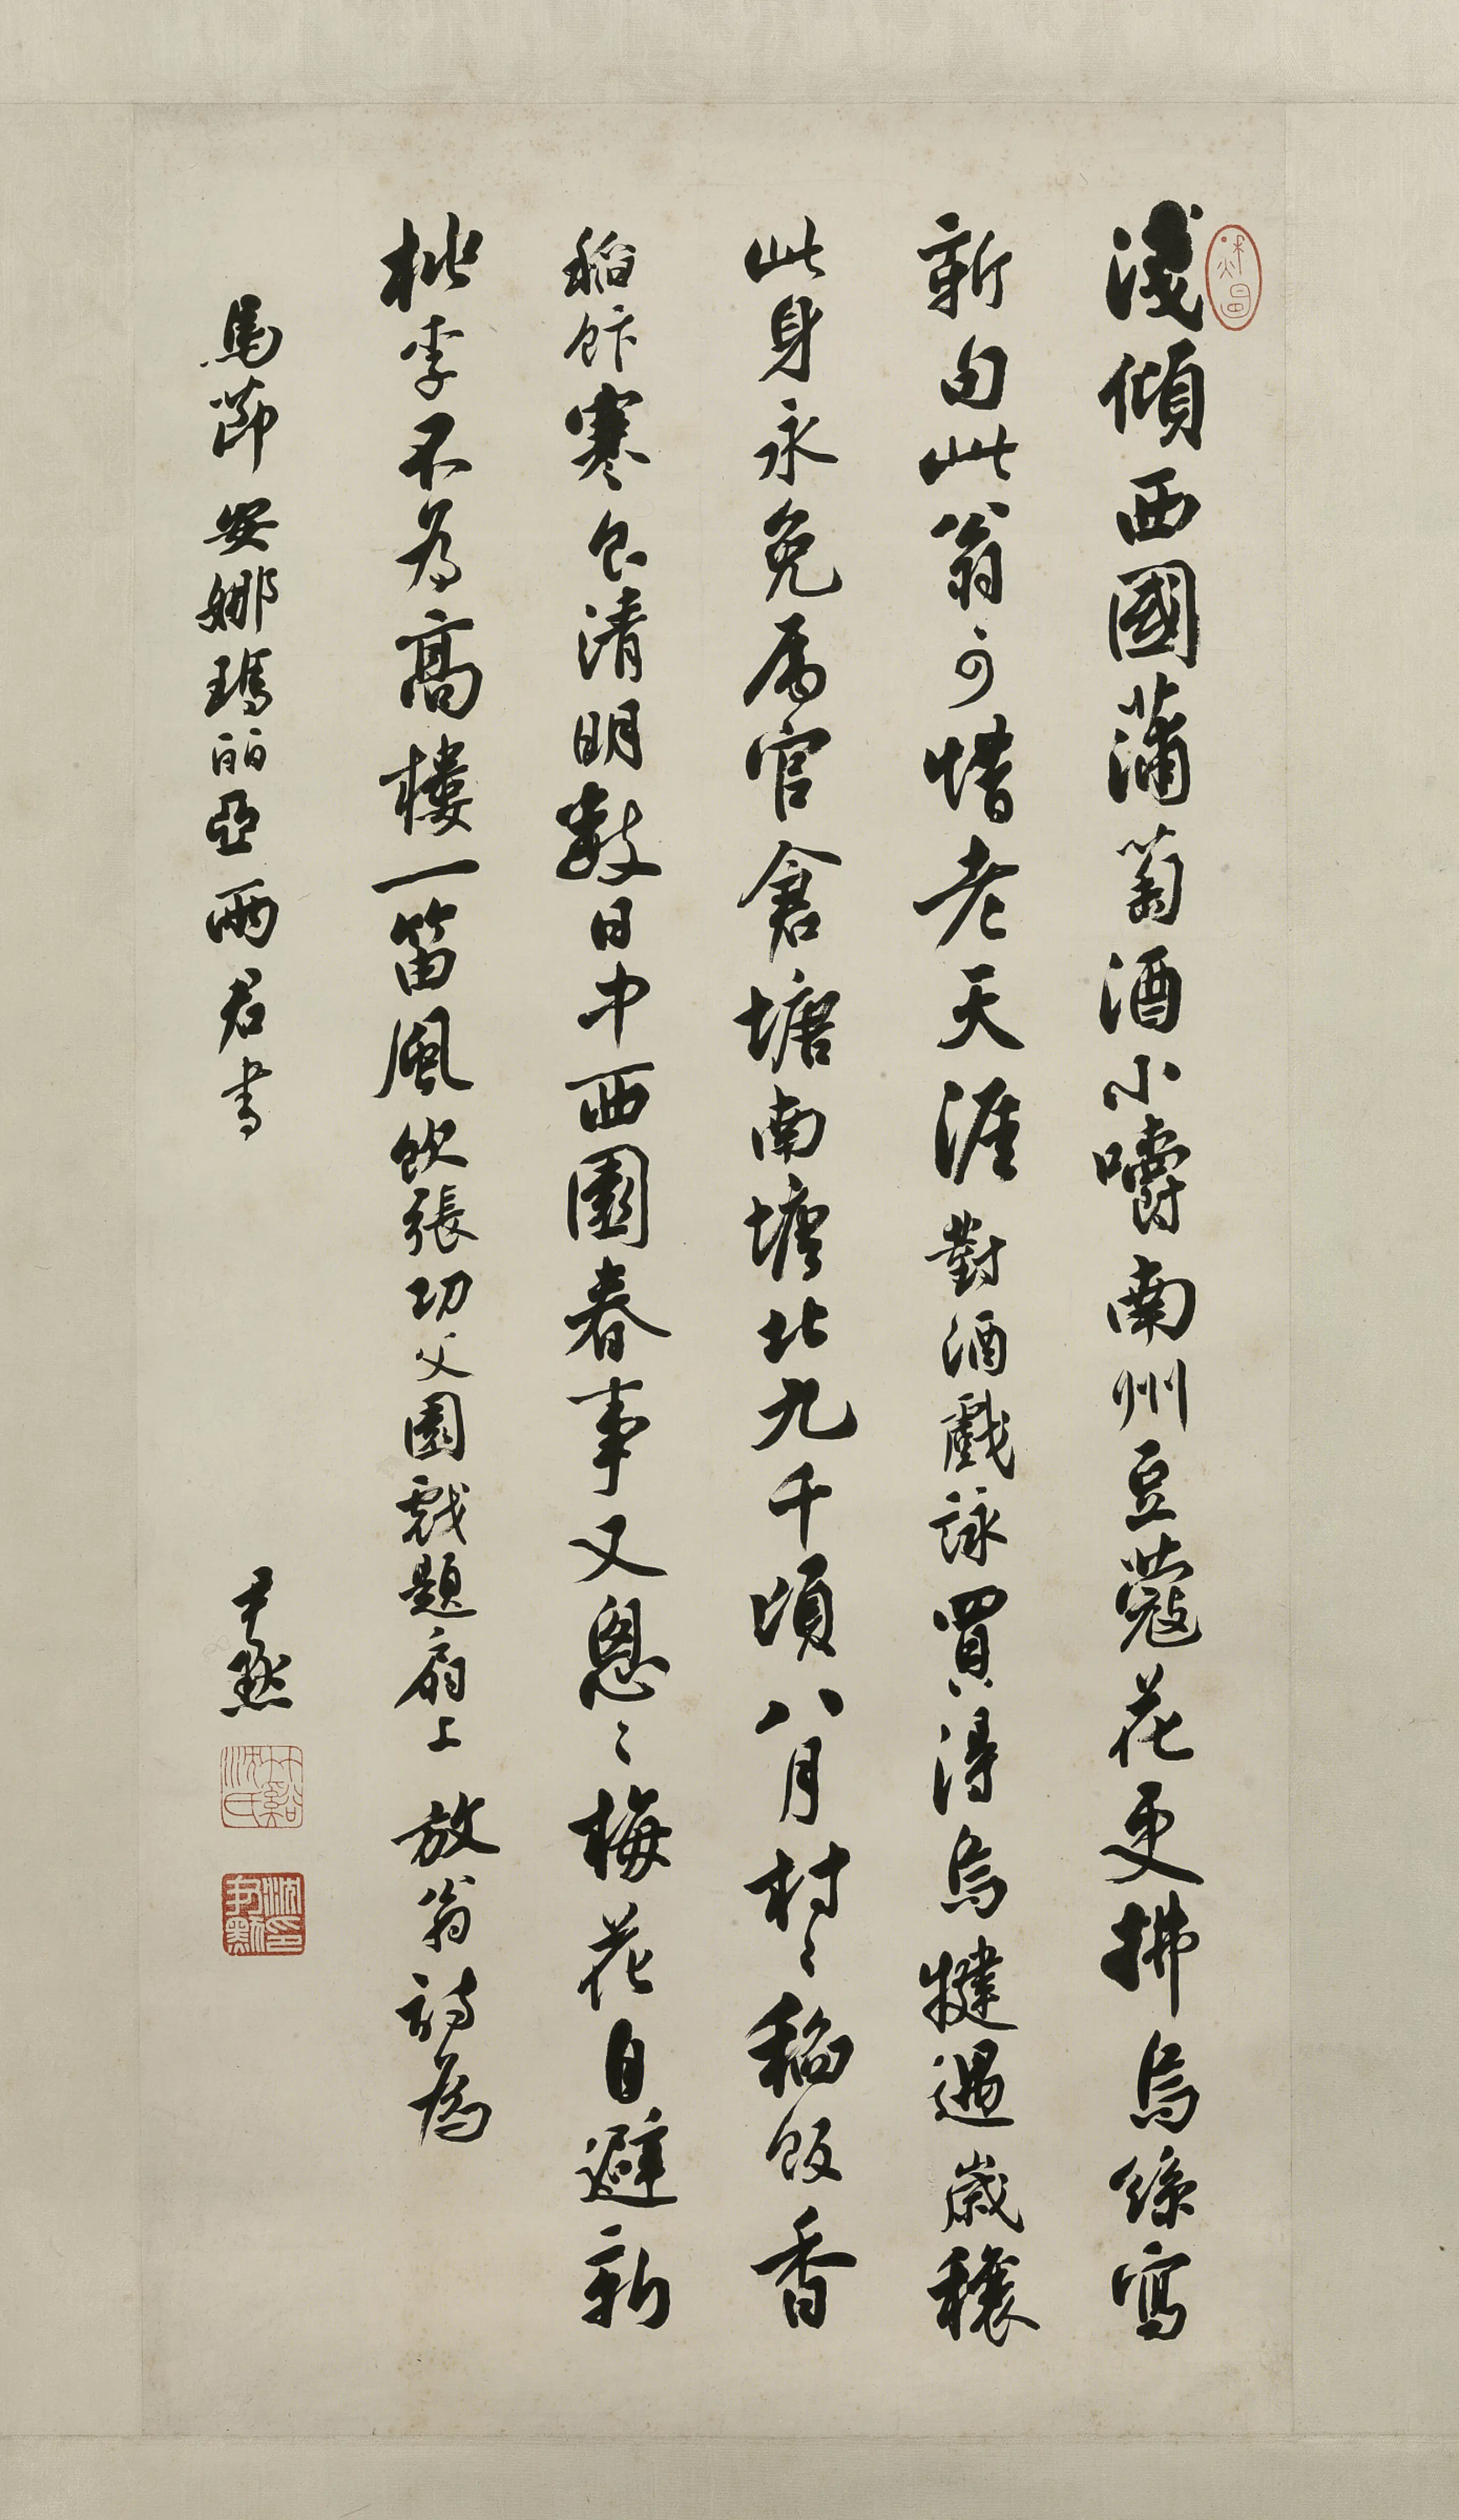 淺傾西國蒲萄酒小嚼南州豆蔻花更拂烏絲寫
新句此翁可惜老天涯 對酒戲詠 買得烏犍遇歲穰
此身永免屬官倉塘南塘北九千頃八月村〻稻飯香
稻飰 寒食清明數日中西園春事又悤〻梅花自避新
桃李不為高樓一笛風 飲張功父園戲題扇上 放翁詩為
馬節 安娜瑪麗亞兩君書
尹默
竹谿沈氏
沈尹默印